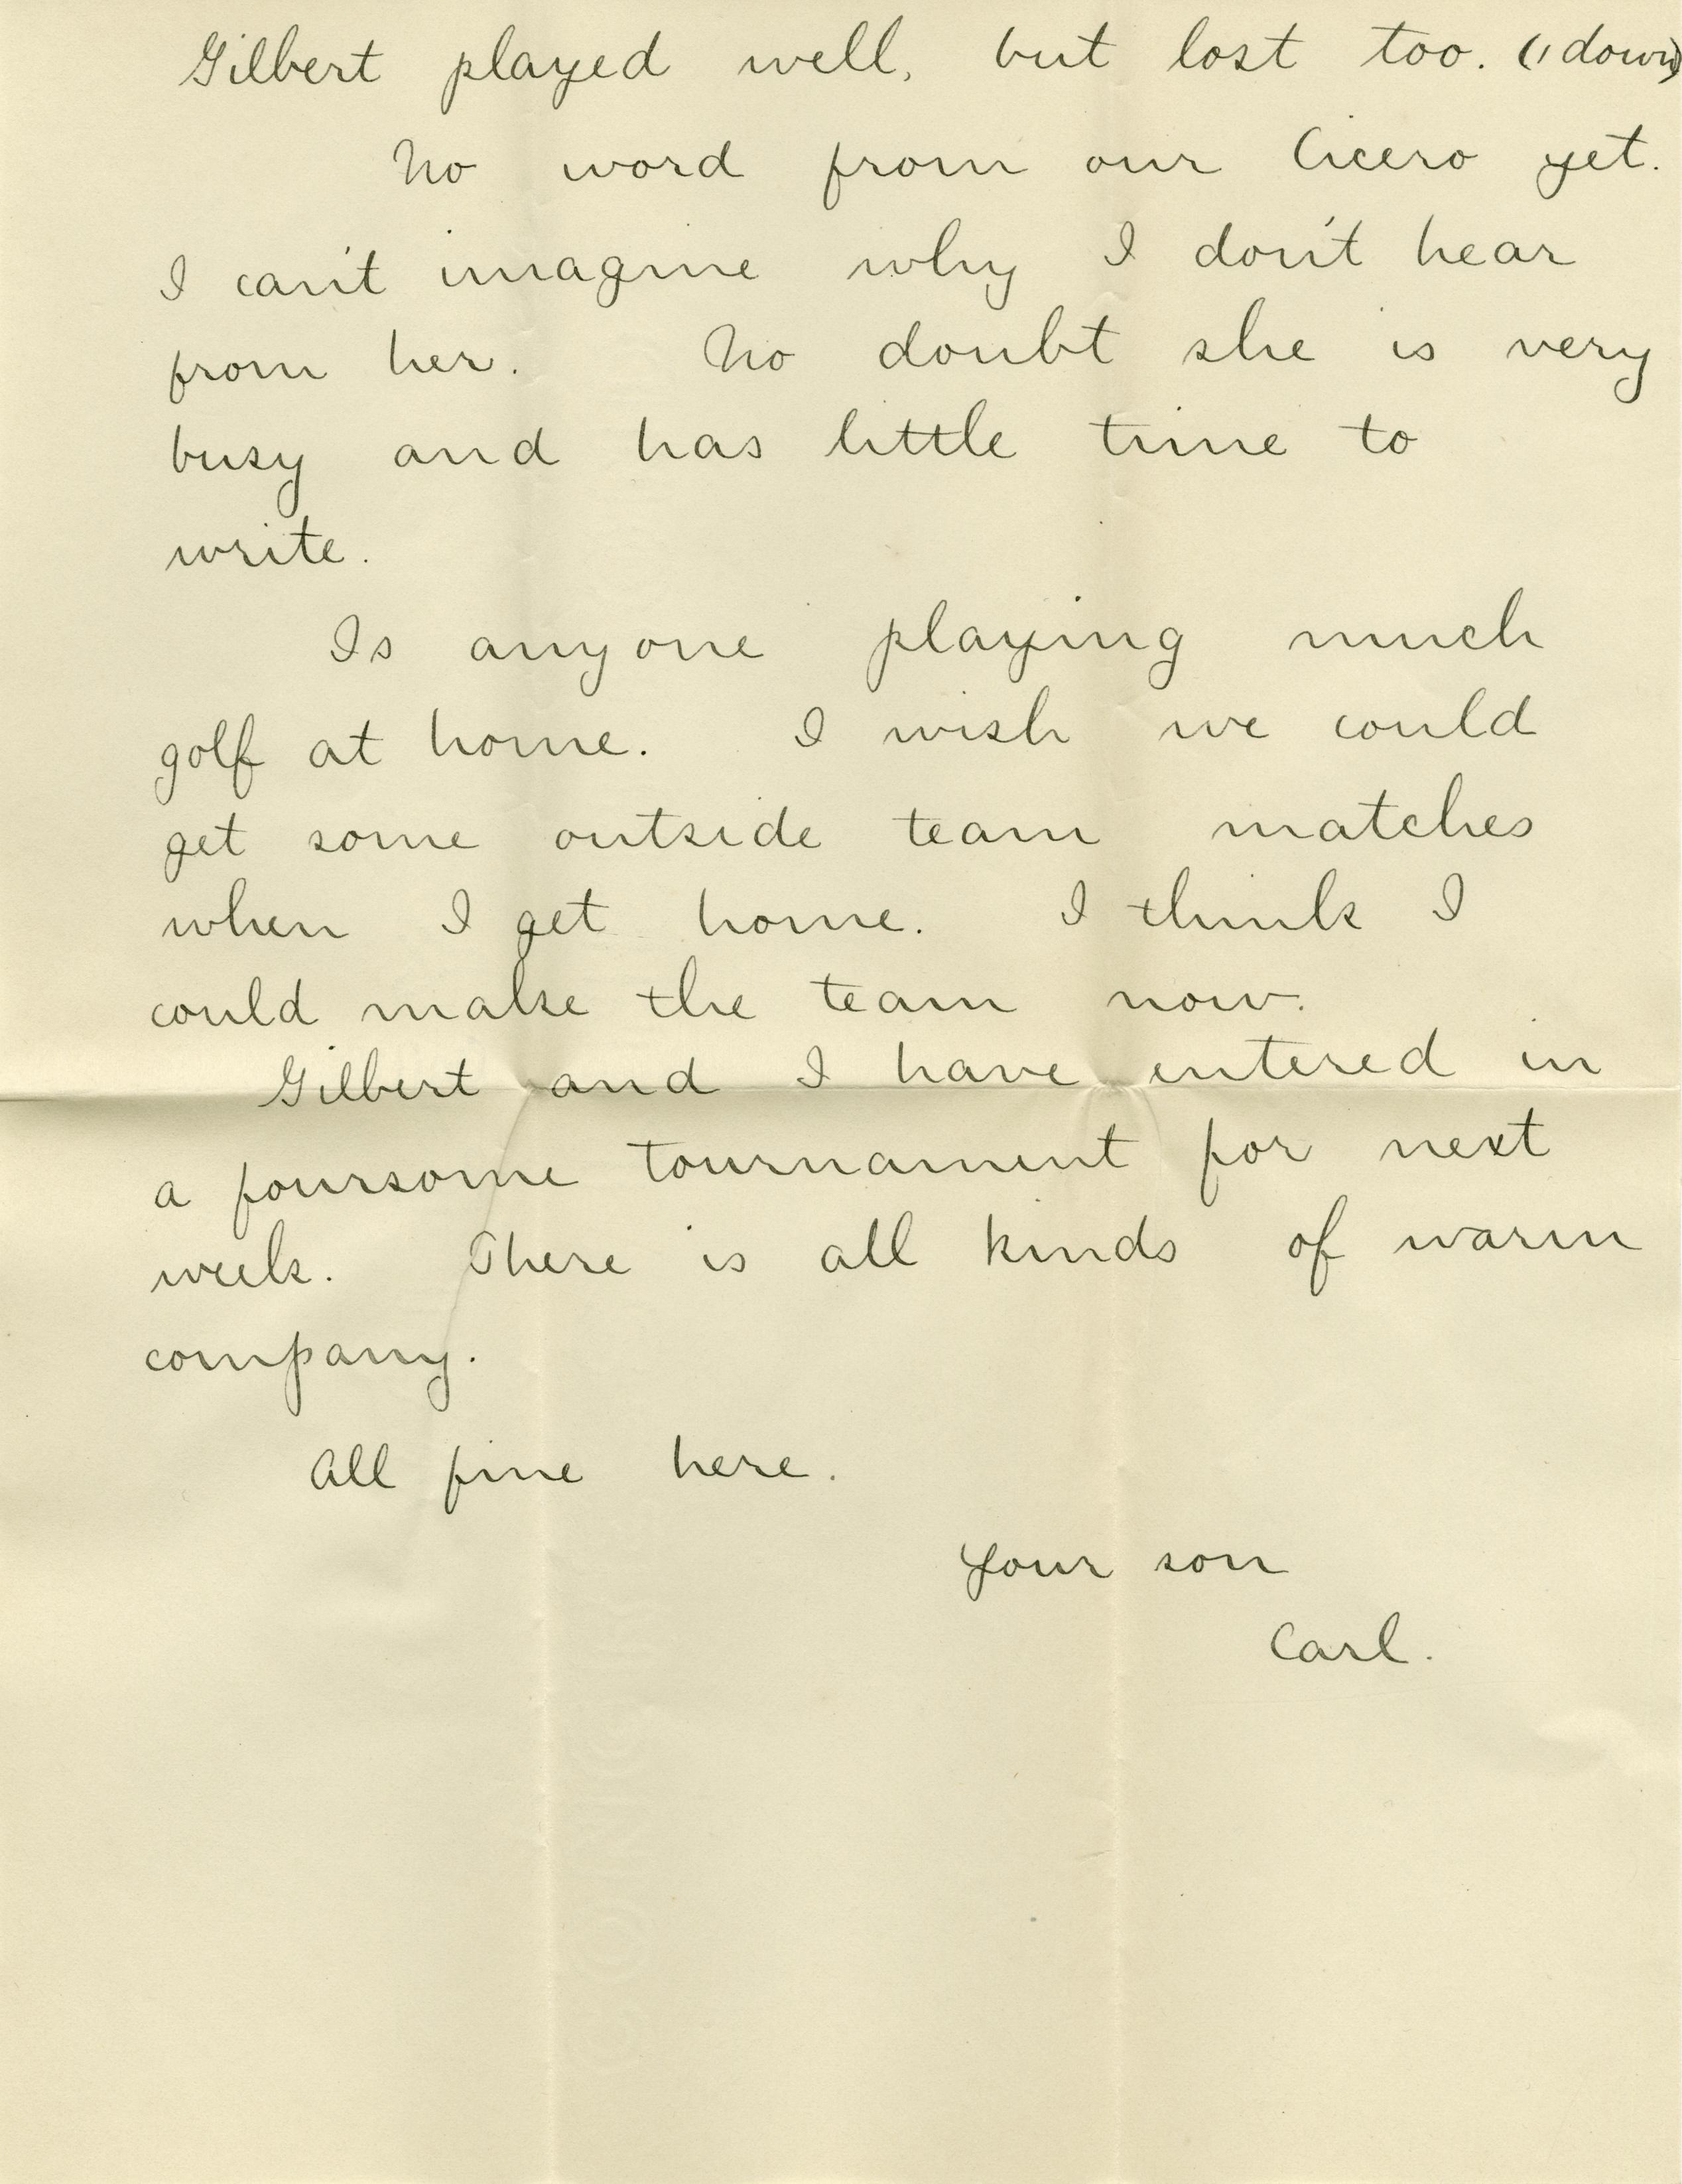 Gilbert played well, but lost too. (1 down)
No word from our Cicero yet.
I can't imagine why I don't hear
from her. No doubt she is very
busy and has little time to
write.
Is anyone playing much
golf at home. I wish we could
get some outside team matches
when I get home. I think I
could make the team now.
Gilbert and I have entered in
a foursome tournament for next
week. There is all kinds of warm
company.
All fine here.
Your son
Carl.